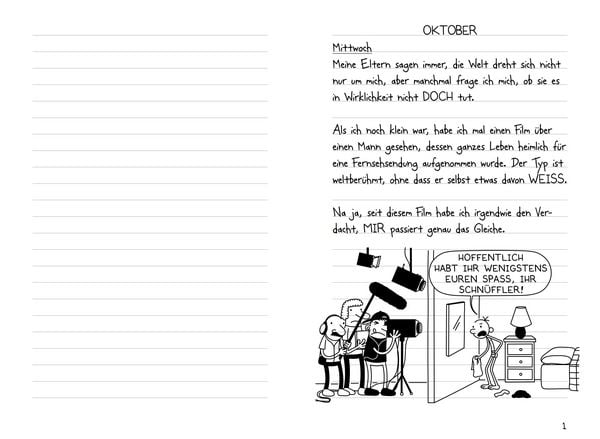 OKTOBER
Mittwoch
Meine Eltern sagen immer, die Welt dreht sich nicht
nur um mich, aber manchmal frage ich mich, ob sie es
in Wirklichkeit nicht DOCH tut.
Als ich noch klein war, habe ich mal einen Film über
einen Mann gesehen, dessen ganzes Leben heimlich für
eine Fernsehsendung aufgenommen wurde. Der Typ ist
weltberühmt, ohne dass er selbst etwas davon WEISS.
Na ja, seit diesem Film habe ich irgendwie den Ver-
dacht, MIR passiert genau das Gleiche.
HOFFENTLICH
HABT IHR WENIGSTENS
EUREN SPASS, IHR
SCHNÜFFLER!
1